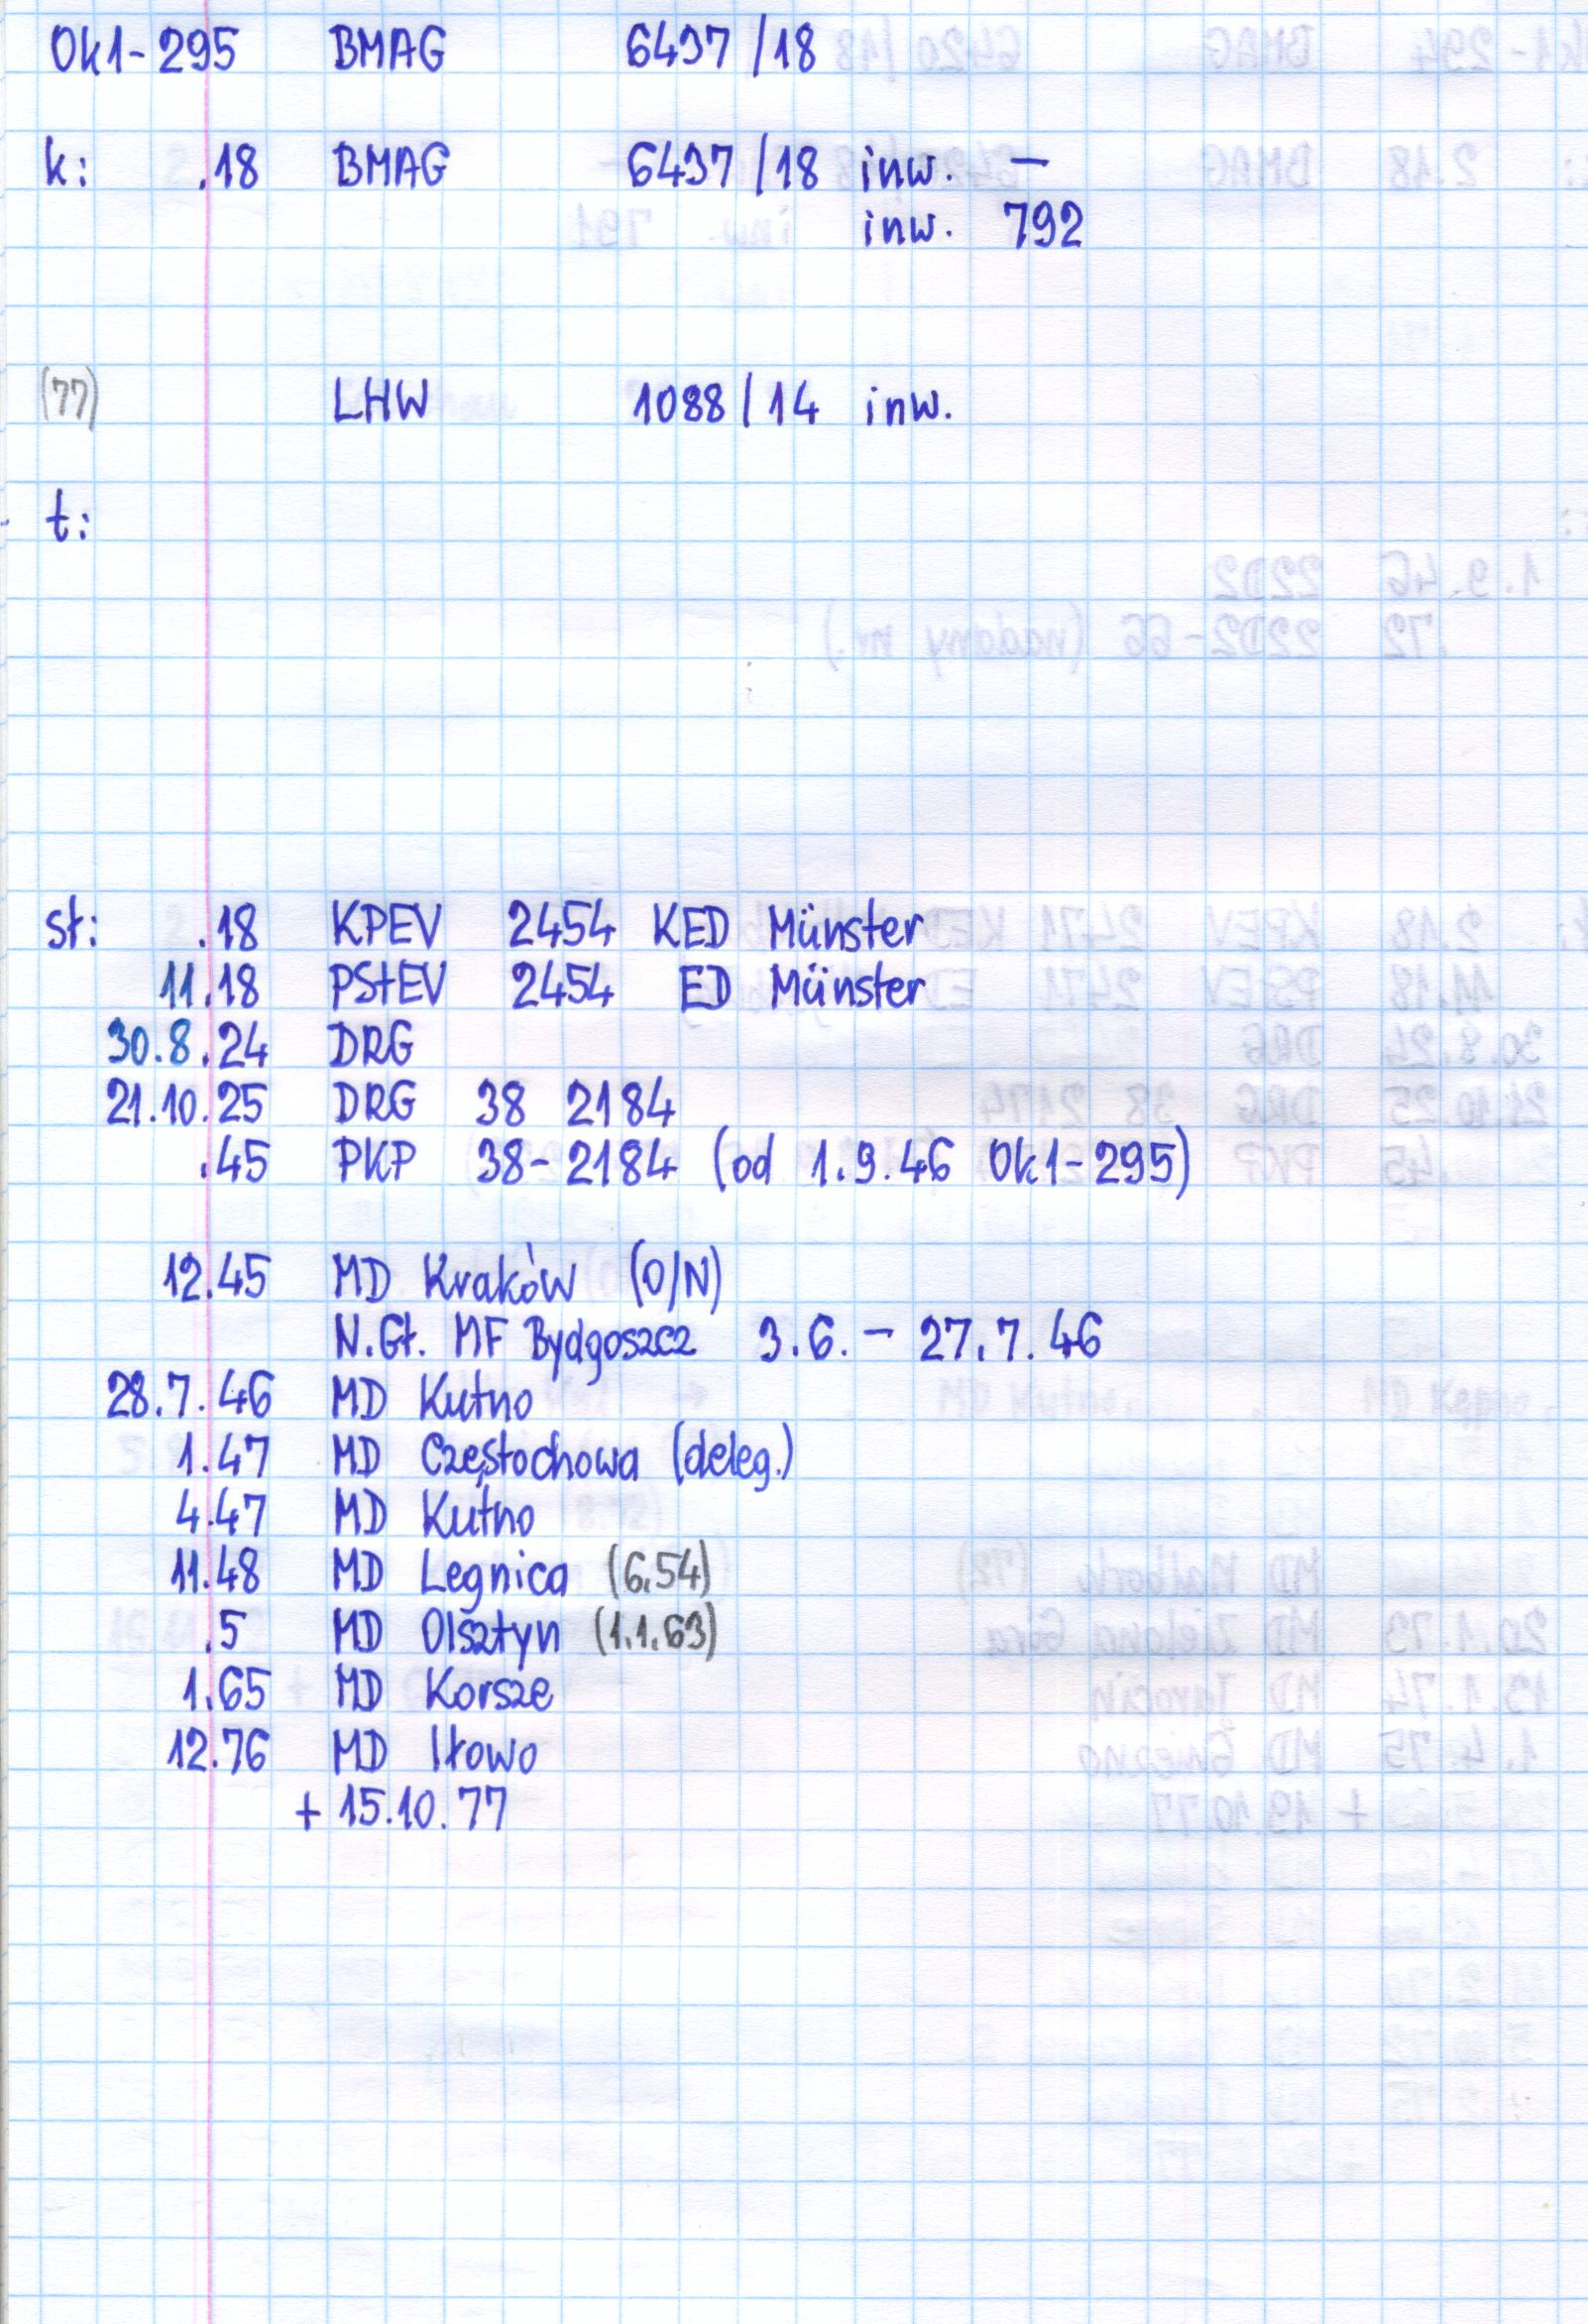 Ok1-295 BMAG 6437/18
k: .18 BMAG 6437/18 inw. —
inw. 792
(77) LHW 1088/14 inw.
t:
st: .18 KPEV 2454 KED Münster
11.18 PStEV 2454 ED Münster
30.8.24 DRG
21.10.25 DRG 38 2184
.45 PKP 38-2184 (od 1.9.46 Ok1-295)
12.45 MD Kraków (O/N)
N.Gł. MF Bydgoszcz 3.6. — 27.7.46
28.7.46 MD Kutno
1.47 MD Częstochowa (deleg.)
4.47 MD Kutno
11.48 MD Legnica (6.54)
.5 MD Olsztyn (1.1.63)
1.65 MD Korsze
12.76 MD Iłowo
+ 15.10.77